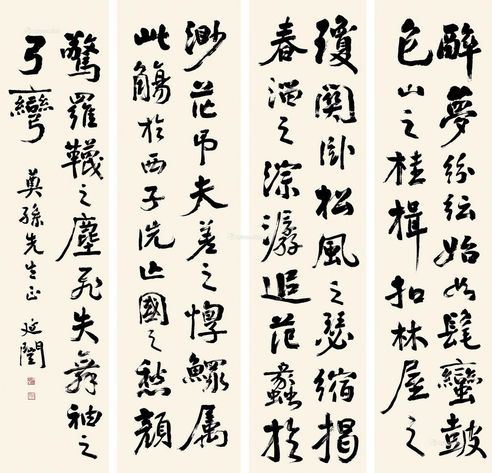 醉夢紛紜始如髦蠻鼓
包山之桂楫扣林屋之
瓊關卧松風之瑟縮揭
春溜之淙潺追范蠡於
渺茫吊夫差之惸鰥属
此觴於西子洗亡國之愁顏
驚羅韈之塵飛失舞袖之
弓彎
孫先生正 延闓